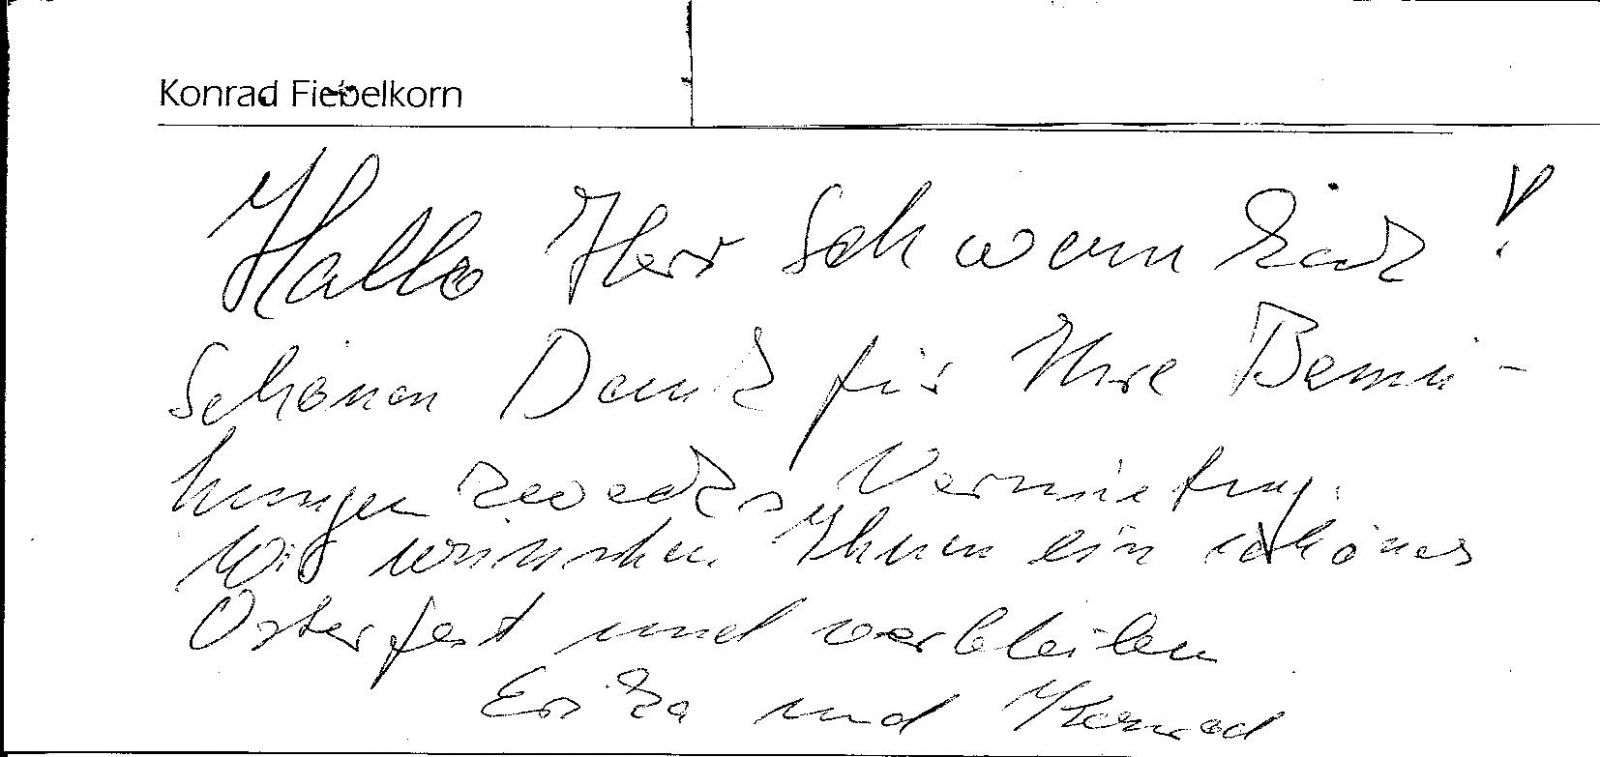 Konrad Fiebelkorn
Hallo Herr !
Schönen Dank für Ihre Bemü-
hungen zwecks Vermietung.
Wir wünschen Ihnen ein schönes
Osterfest und verbleiben
Erika und Konrad